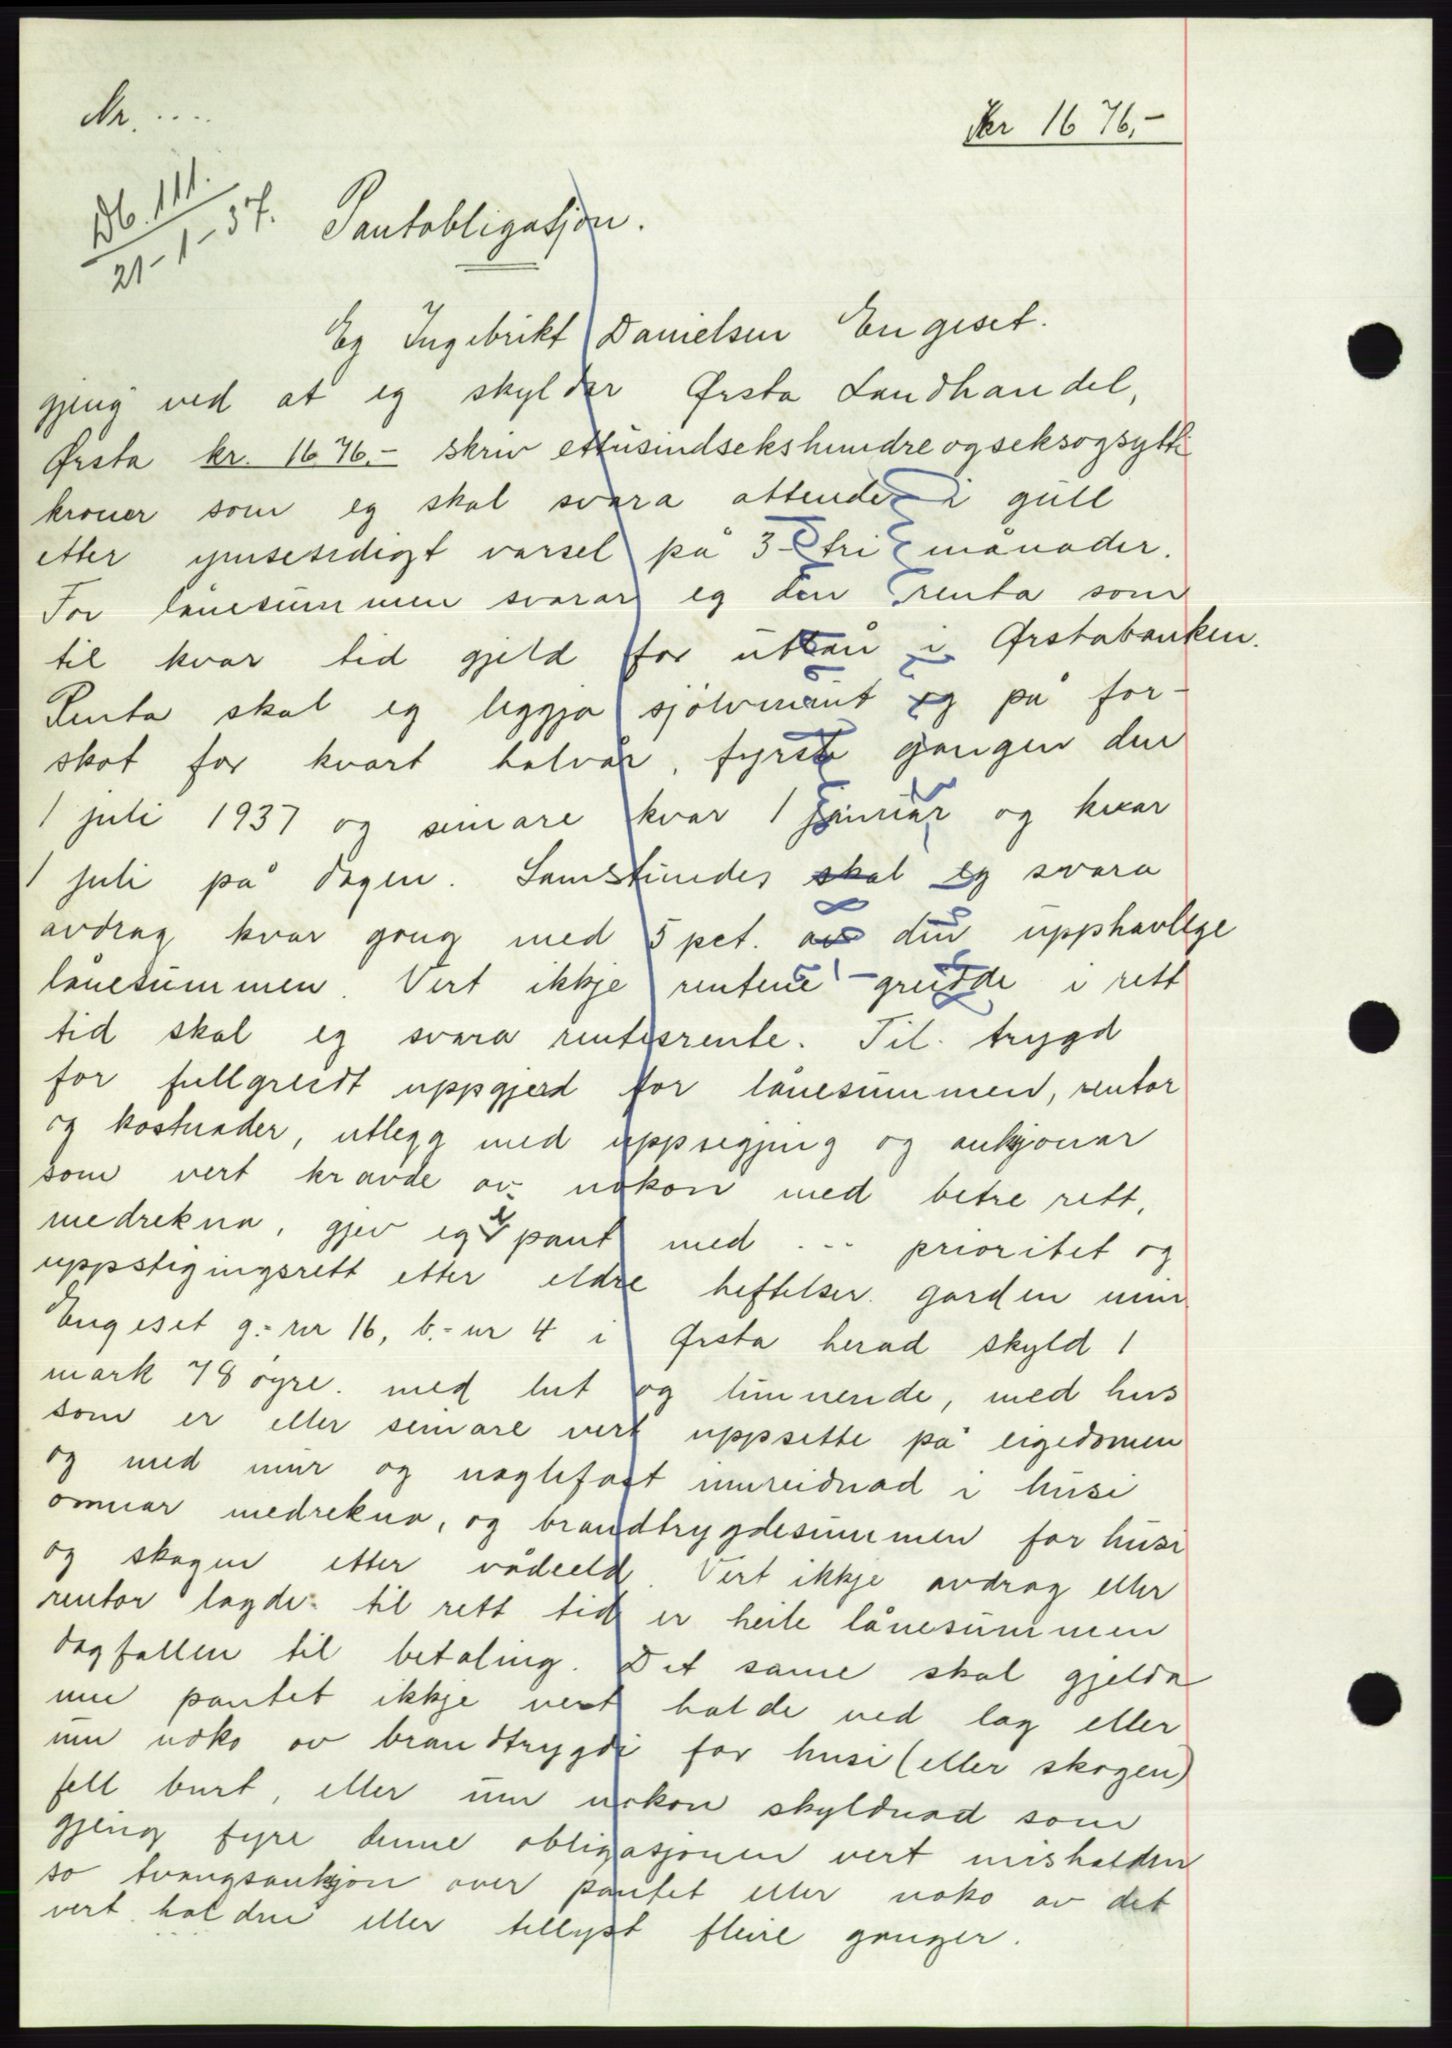 Nr. ....
Kr 1676,-
Db. 111.
21-1-37.
Pantobligasjon.
Eg Ingebrikt Danielsen Engeset.
gjeng ved at eg skyldar Ørsta Landhandel,
Ørsta kr. 1676.- skriv ettusindsekshundreogseksogsytti
kroner som eg skal svara attende i gull
etter ymsesidigt varsel på 3 - tri månader.
For lånesummen svarar eg den renta som
til kvar tid gjeld for utlån i Ørstabanken.
Renta skal eg leggja sjølvmint og på for-
skot for kvart halvår, fyrste gongen den
1 juli 1937 og seinare kvar 1 januar og kvar
1 juli på dagen. Samstundes skal eg svara
avdrag kvar gong med 5 pct. av din upphavlege
lånesummen. Vert ikkje rentene greidde i rett
tid skal eg svara rentesrente. Til trygd
for fullgreidt uppgjerd for lånesummen, rentor
og kostnader, utlegg med uppsegjing og aukjonar
som vert kravde av nokon med betre rett,
medrekna, gjev eg pant med ... prioritet og
uppstigingsrett etter eldre heftelser garden min
Engeset g.-nr 16, b.-nr 4 i Ørsta herad skyld 1
mark 78 øyre. med lut og lunnende, med hus
som er eller seinare vert uppsette på eigedomen
og med mur og naglefast innreidnad i husi
omnar medrekna, og brandtrygdesummen for husi
og skogen etter vådeeld. Vert ikkje avdrag eller
rentor lagde til rett tid er heile lånesummen
dagfallen til betaling. Det same skal gjelda
um pantet ikkje vert halde ved lag eller
um noko av brandtrygdi for husi (eller skogen)
fell burt, eller um nokon skyldnad som
gjeng fyre denne obligasjonen vert mishalden
so tvangsaukjon over pantet eller noko av det
vert halden eller tellyst fleire gonger.